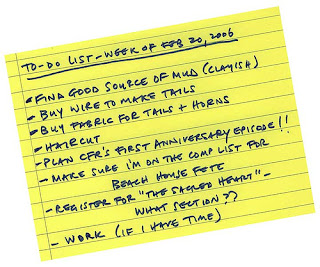 TO-DO LIST - WEEK OF FEB 20, 2006
- FIND GOOD SOURCE OF MUD (CLAYISH)
- BUY WIRE TO MAKE TAILS
- BUY FABRIC FOR TAILS + HORNS
- HAIRCUT
- PLAN CFR'S FIRST ANNIVERSARY EPISODE!!
- MAKE SURE I'M ON THE COMP LIST FOR
BEACH HOUSE FETE
- REGISTER FOR "THE SACRED HEART" -
WHAT SECTION??
- WORK (IF I HAVE TIME)